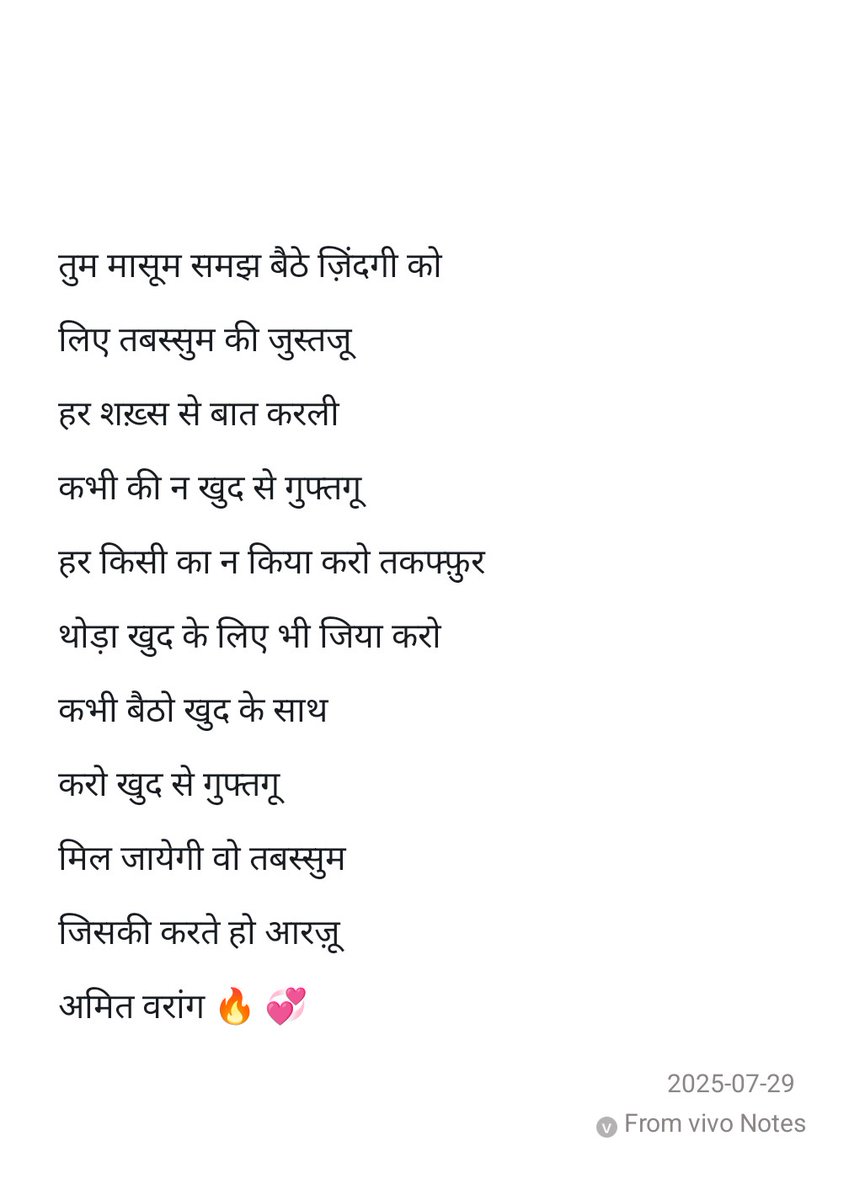 तुम मासूम समझ बैठे ज़िंदगी को
लिए तबस्सुम की जुस्तजू
हर शख़्स से बात करली
कभी की न खुद से गुफ्तगू
हर किसी का न किया करो तकफ्फ़ुर
थोड़ा खुद के लिए भी जिया करो
कभी बैठो खुद के साथ
करो खुद से गुफ्तगू
मिल जायेगी वो तबस्सुम
जिसकी करते हो आरज़ू
अमित वरांग 🔥 💞
2025-07-29
v From vivo Notes